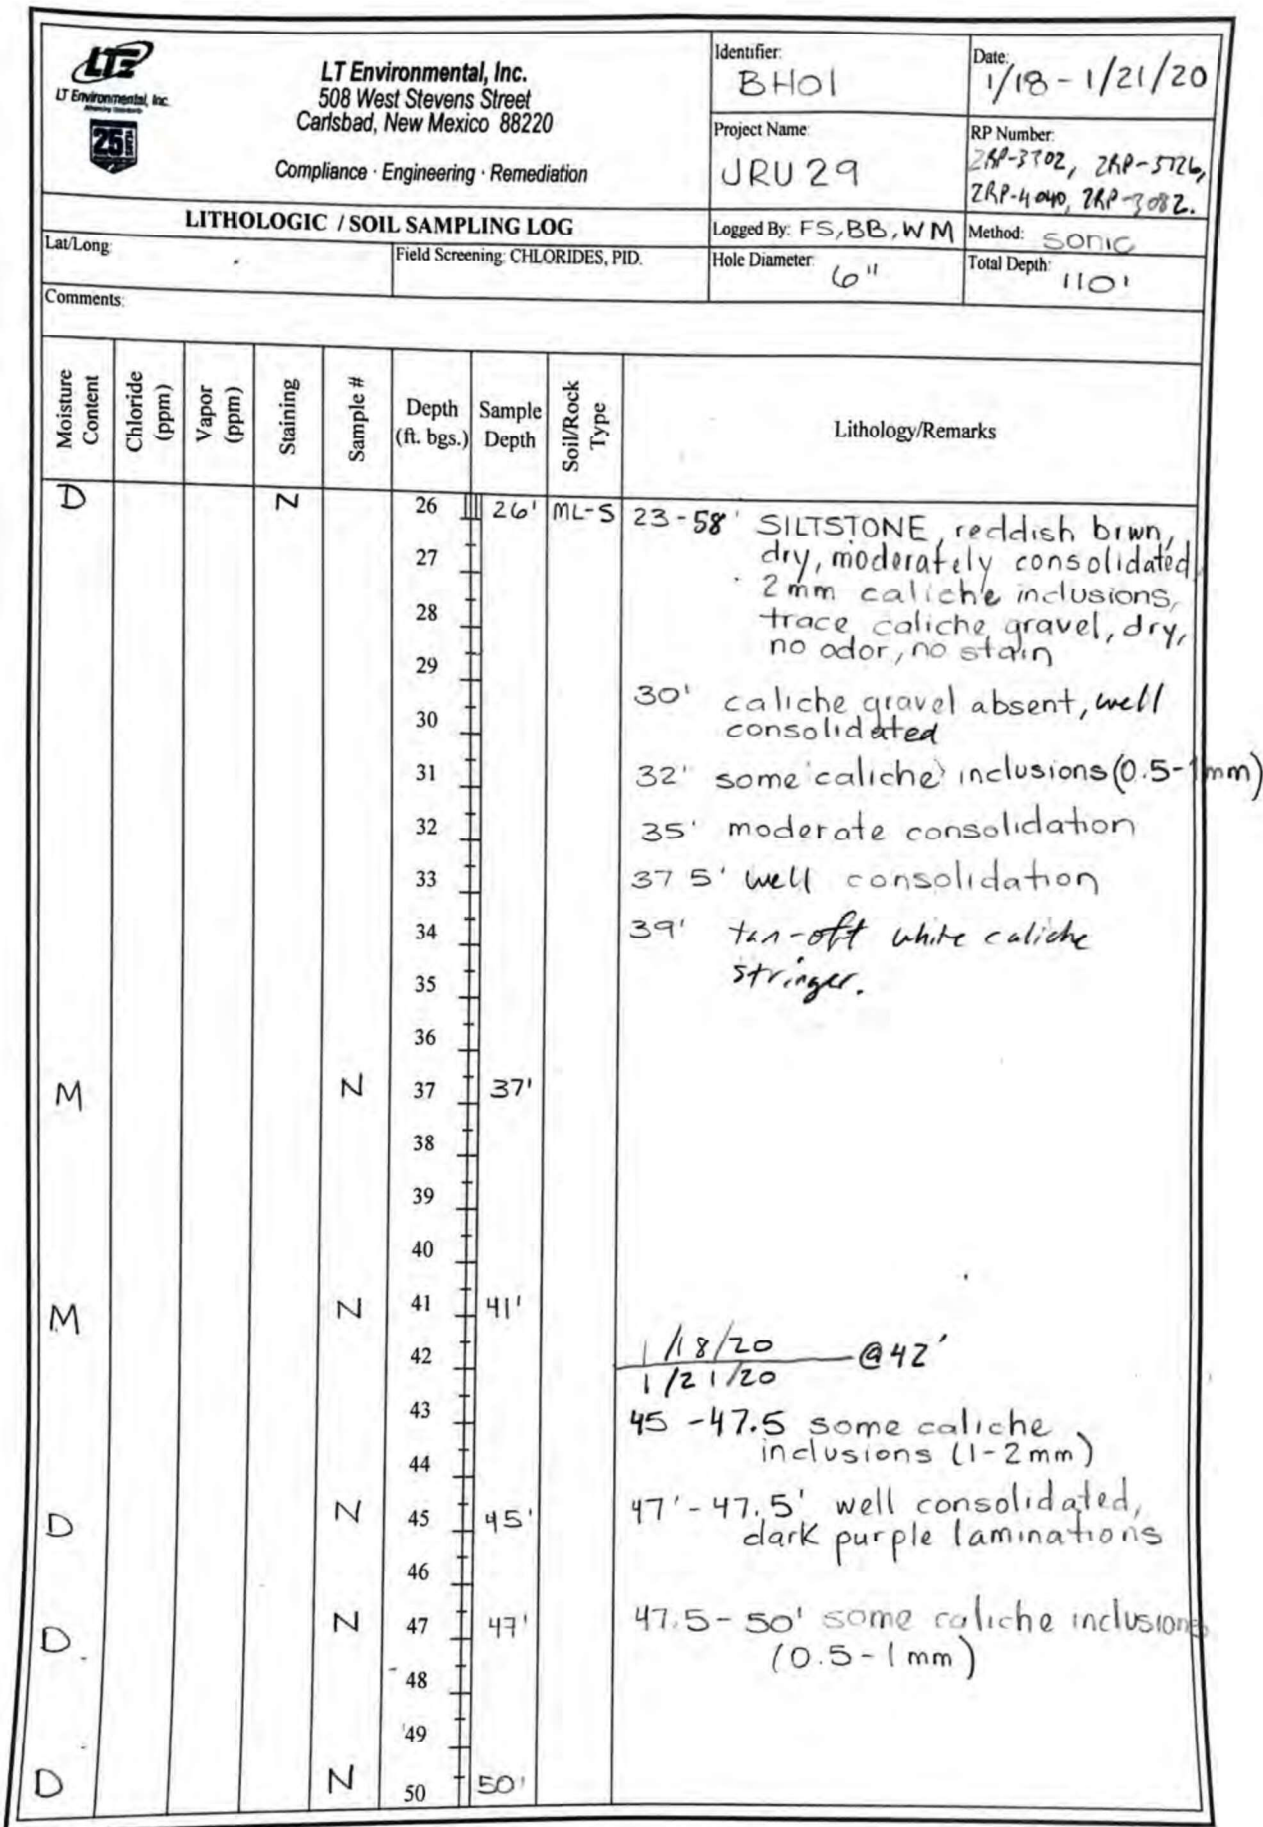 LTE
LT Environmental, Inc.
25
LT Environmental, Inc.
508 West Stevens Street
Carlsbad, New Mexico 88220
Compliance · Engineering · Remediation
Identifier:
BH01
Date:
1/18 - 1/21/20
Project Name:
JRU 29
RP Number:
2RP-3302, 2RP-5726,
2RP-4040, 2RP-3082.
LITHOLOGIC / SOIL SAMPLING LOG
Logged By: FS, BB, WM
Method: Sonic
Lat/Long:
Field Screening: CHLORIDES, PID.
Hole Diameter: 6"
Total Depth: 110'
Comments:
Moisture Content
Chloride (ppm)
Vapor (ppm)
Staining
Sample #
Depth (ft. bgs.)
Sample Depth
Soil/Rock Type
Lithology/Remarks
D N 26 26' ML-S 23-58' SILTSTONE, reddish brwn,
27 dry, moderately consolidated,
2mm caliche inclusions,
28 trace caliche gravel, dry,
29 no odor, no stain
30' caliche gravel absent, well
30 consolidated
31 32' some caliche inclusions (0.5-1mm)
32 35' moderate consolidation
33 37 5' well consolidation
34 39' tan-off white caliche
35 stringer.
36
M N 37 37'
38
39
40
M N 41 41'
1/18/20 @42'
42
1/21/20
43 45 -47.5 some caliche
44 inclusions (1-2mm)
D N 45 45' 47'-47.5' well consolidated,
dark purple laminations
46
D N 47 47' 47.5-50' some caliche inclusions
(0.5-1mm)
48
49
D N 50 50'